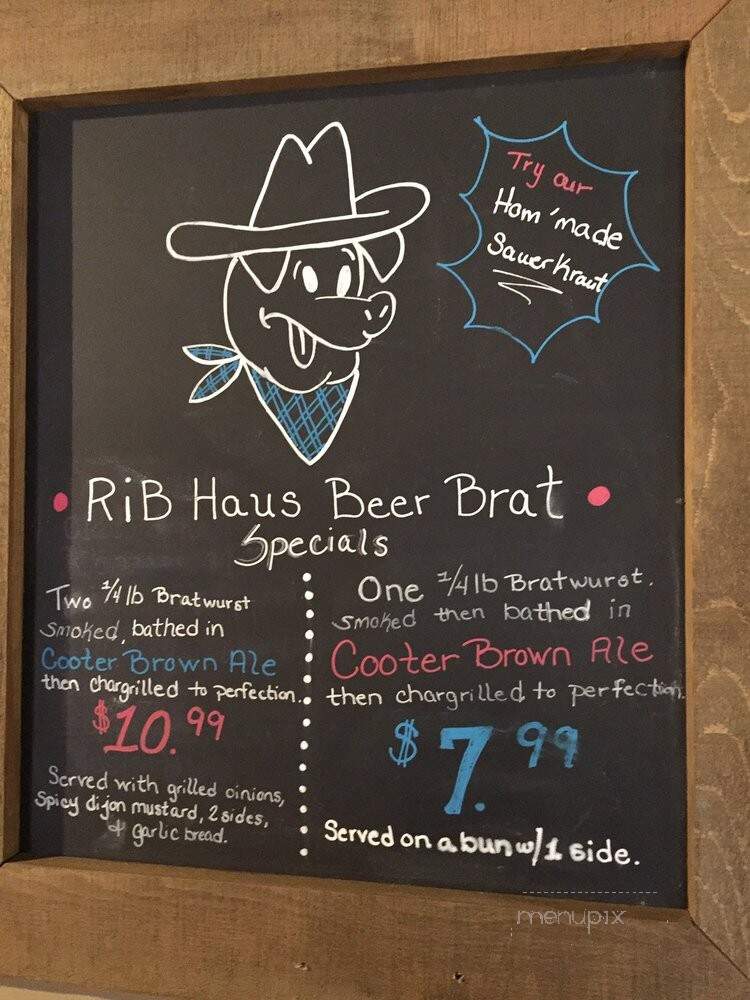 Try our
Hom'made
SauerKraut
RiB Haus Beer Brat
Specials
Two 1/4 lb Bratwurst
smoked, bathed in
Cooter Brown Ale
then chargrilled to perfection.
$10.99
Served with grilled oinions,
Spicy dijon mustard, 2 sides,
& garlic bread.
One 1/4 lb Bratwurst.
smoked then bathed in
Cooter Brown Ale
then chargrilled to perfection.
$7.99
Served on a bun w/1 side.
menupix